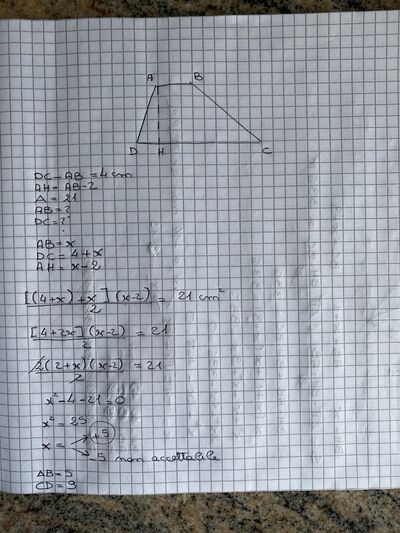 A B
D H C
DC - AB = 4 cm
AH = AB - 2
A = 21
AB = ?
DC = ?
AB = x
DC = 4 + x
AH = x - 2
[(4+x)+x](x-2)/2 = 21 cm²
[4+2x](x-2)/2 = 21
2(2+x)(x-2)/2 = 21
x² - 4 - 21 = 0
x² = 25
x = +5
-5 non accettabile
AB = 5
CD = 9